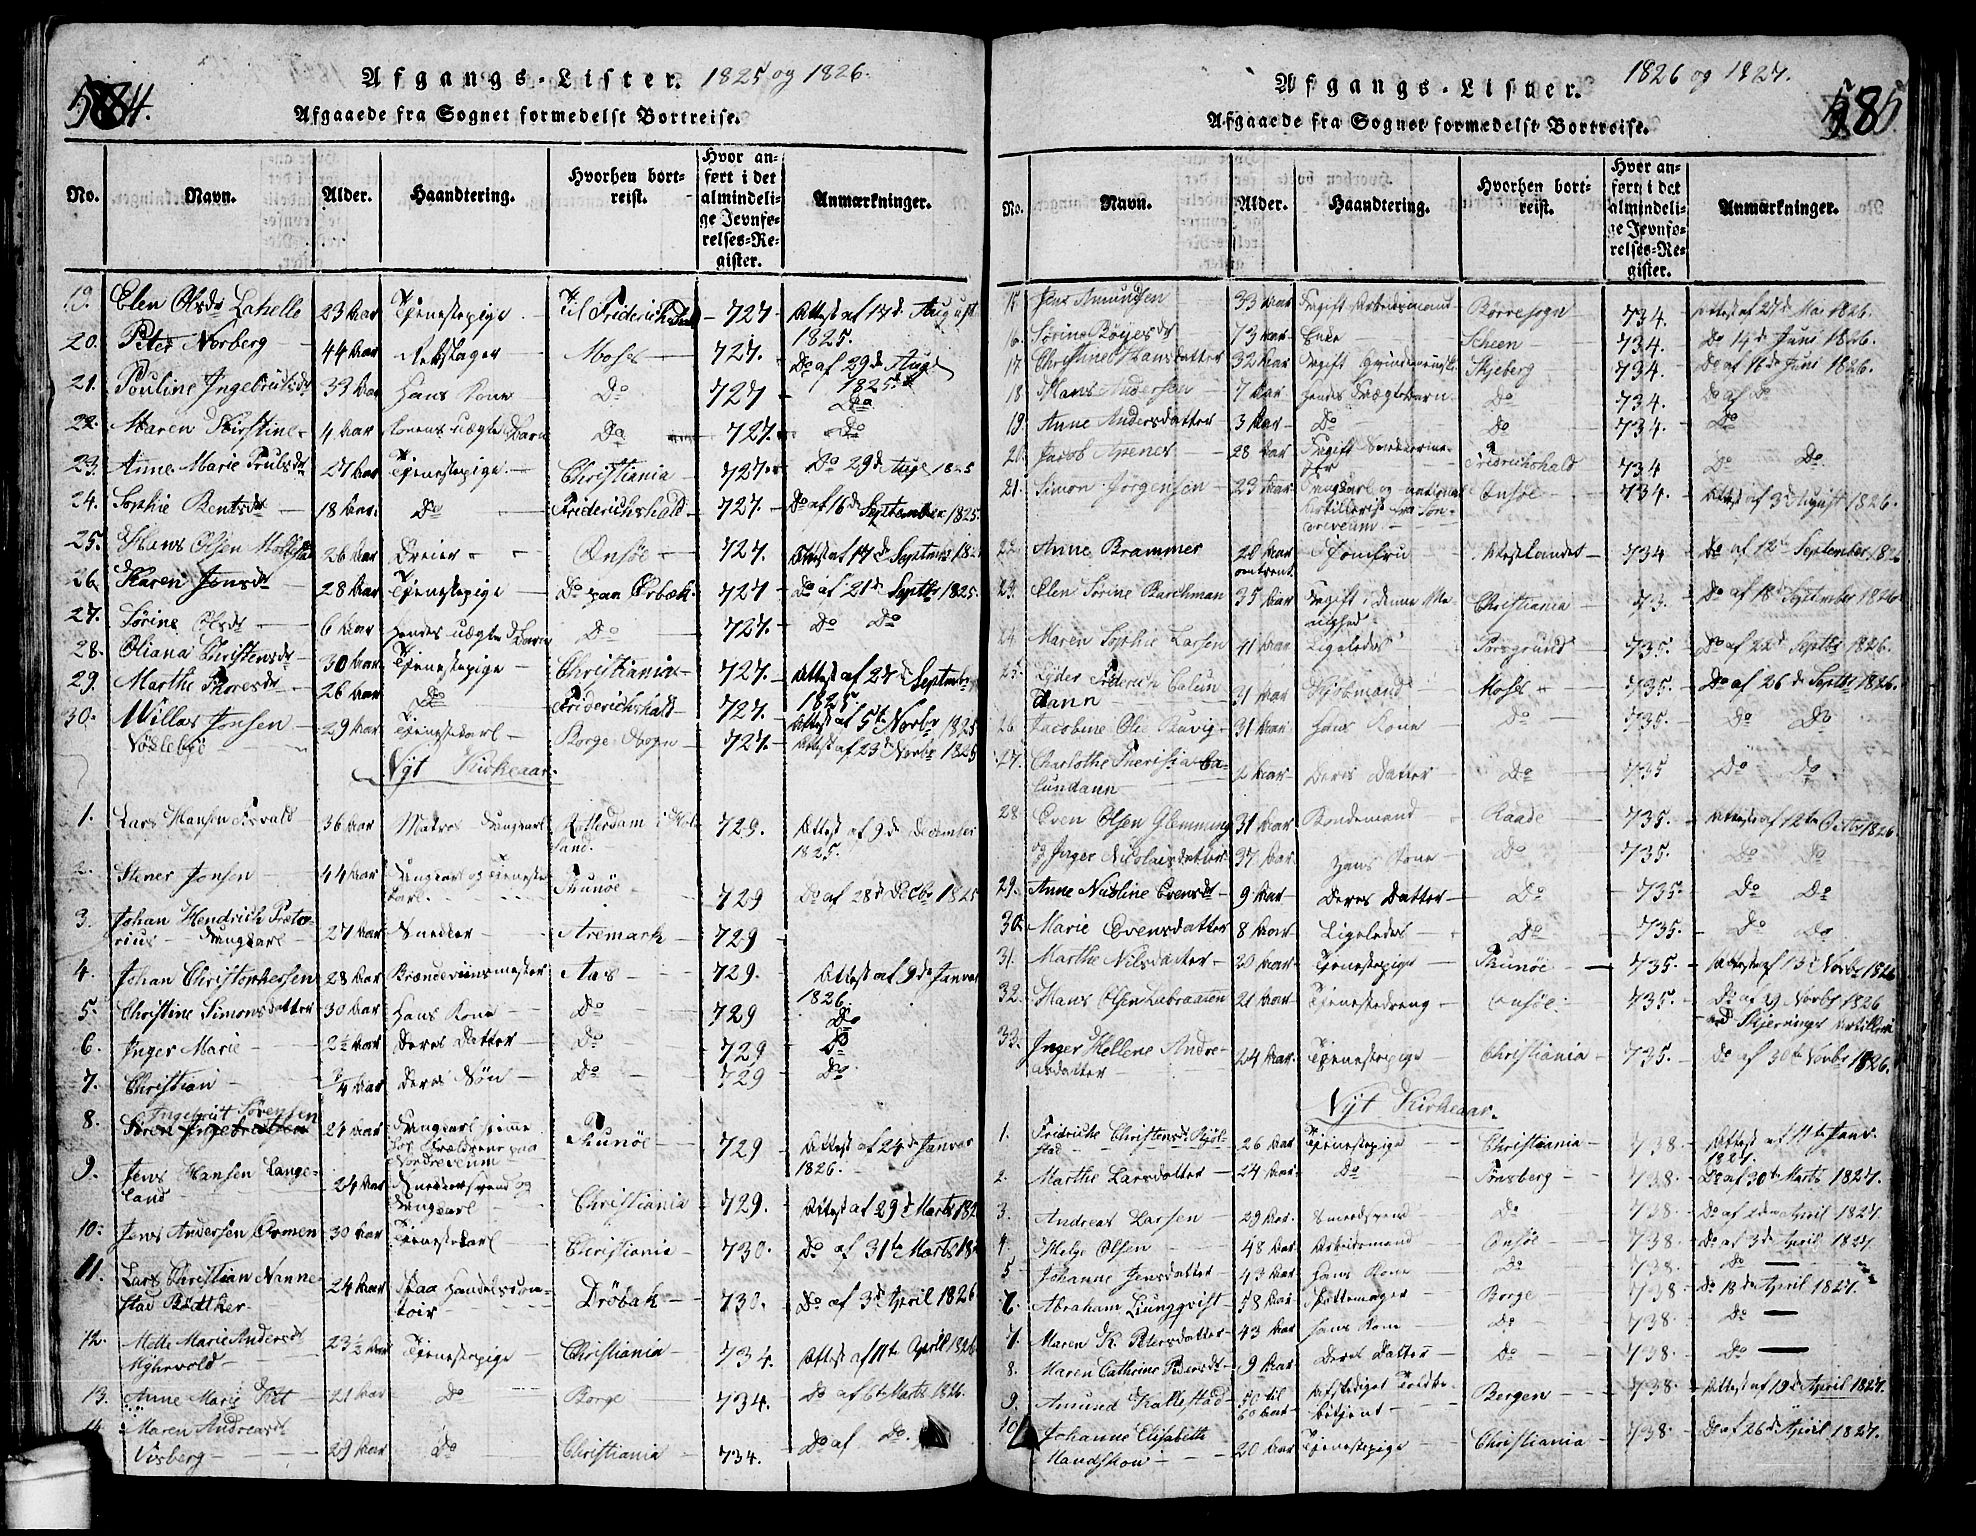 584.
Afgangs-Lister. 1825 og 1826.
Afgaaede fra Sognet formedelst Bortreise.
No. Navn. Alder. Haandtering. Hvorhen bortreist. Hvor anført i det almindelige Jevnførelses-Register. Anmærkninger.
19. Elen Olsdr 23 Aar Tjenestepige Til Friderichstad 727 Attest af 17d August 1825.
20. Peter Norberg 44 Aar Rebslager Moss 727. Do af 29d Aug 1825
21. Pouline Ingebrigtsdr 33 Aar Hans Kone Do 727 Do
22. Maren Kirstine 4 Aar Konens uægte Barn Do 727. Do
23. Anne Marie Trulsdr 27 Aar Tjenestepige Christiania 727 Do 29d Aug 1825
24. Sophie Bentsdr 18 Aar Do Friderichshald 727. Do af 16d September 1825.
25. Hans Olsen 26 Aar Dreier Onsøe 727. Attest af 17d Septembr
26. Karen Jonsdr 28 Aar Tjenestepige Do paa Ørbæk 727 Do af 21d Septbr 1825.
27. Sørine Olsdr 6 Aar Hendes uægte Barn Do 727. Do Do
28. Oliana Christensdr 30 Aar Tjenestepige Christiania 727. Attest af 27d Septembr 1825.
29. Marthe Thoresdr 26 Aar Do Friderichshald 727. Attest af 5te Novbr 1825
30. Willas Jonsen Nødlebye 29 Aar Tjenestekarl Borge Sogn 727. Attest af 23d Novbr 1825
Nyt Kirkeaar.
1. Lars Hansen 36 Aar Matros Ungkarl Rotterdam i Holland. 729. Attest af 9d December 1825.
2. Stener Jonsen 44 Aar Ungkarl og Tjenestekarl. Thunøe 729 Do af 28d Decbr 1825
3. Johan Hendrich Prætorius Ungkarl 27 Aar Snedker Aremark 729
4. Johan Christophersen 28 Aar Brændeviinsmester Aas 729. Attest af 9de Januar 1826.
5. Christine Simonsdatter 30 Aar Hans Kone Do 729 Do
6. Inger Marie 2½ Aar Deres Datter Do 729 Do
7. Christian ¾ Aar Deres Søn Do 729 Do
8. Ingebrigt Sørensen 24 Aar Ungkarl hjemme hos Forældrene paa Nordreveum Thunøe 729 Attest af 24d Januar 1826.
9. Jens Hansen Langeland 24 Aar Snedkersvend og Ungkarl Christiania 729. Attest af 29d Marts
10. Jens Andersen Ormen 30 Aar Tjenestekarl Christiania 730. Do af 31te Marts
11. Lars Christian Nannestad Bødtker 24 Aar Paa Handelscontoir Drøbak 730. Do af 3d April 1826
12. Mette Marie Andersdr 23½ Aar Tjenestepige Christiania 734. Attest af 11te April 1826
13. Anne Marie 21 Aar Do Borge 734. Do af 6te Marts 1826.
14. Maren Andreasdr Visberg 29 Aar Do Christiania 734. Do af Do.
585
Afgangs-Lister. 1826 og 1827.
Afgaaede fra Sognet formedelst Bortreise.
No. Navn. Alder. Haandtering. Hvorhen bortreist. Hvor anført i det almindelige Jevnførelses-Register. Anmærkninger.
15 Jens Amundsen 33 Aar Ugift Arbeidsmand Borresogn 734. Attest af 27d Mai 1826.
16. Sørine Røyesdr 73 Aar Enke Scheen 734. Do 14d Juni 1826.
17. Christine Hansdatter 32 Aar Ugift Qvindemenneske Skjeberg 734. Do af 16d Juni 1826.
18 Hans Andersen 7 Aar Hendes Uægte Barn Do 734. Do af Do
19. Anne Andersdatter 3 Aar Do Do 734. Do
20. Jacob 28 Aar Ugift Friderichshald 734 Do Do.
21. Simon Jørgensen 23 Aar Ungkarl og national Artillerist fra Søndreveum. Onsøe 734. Attest af 3d August 1826.
22. Anne Brammer 20 Aar omtrent Jomfru 734 Do af 12te September
23. Elen Sørine Barchman 35 Aar Ugift i denne Menighed Christiania 73. Do af 18d September 1826
24. Maren Sophie Larsen 41 Aar Ligeledes Porsgrund 735. Do af 22d Septbr 1826.
25. Lyder Friderich Calundann 31 Aar Kjøbmand Moss 735. Do af 26d Septbr 1826.
26. Jacobine 31 Aar Hans Kone Do 735. Do Do
27. Charlothe Theresia Calundann 2 Aar Deres Datter Do 735 Do Do
28 Even Olsen Glemming 31 Aar Bondemand Raade 735. Attest af 12te Octbr 1826
og Inger Nicolaisdatter 37 Aar Hans Kone Do 735. Do Do
29. Anne Nicoline Evensdr 9 Aar Deres Datter Do 735. Do Do
30. Marie Evensdatter 8 Aar Ligeledes Do 735. Do Do
31. Marthe Nilsdatter 30 Aar Tjenestepige Thunøe 735. Attest af 13d Novbr 1826
32. Hans Olsen Labraaten 21 Aar Tjenestedreng Onsøe 735. Do af 29 Novbr 1826
33. Inger Hellene Andreasdatter 24 Aar Tjenestepige Christiania 735. Do af 30te Novbr 1826.
Nyt Kirkeaar.
1. Friderikke Christensdr 26 Aar Tjenestepige Christiania 738. Attest af 11te Janr. 1827.
2. Marthe Larsdatter 24 Aar Do Tønsberg 738. Do af 30te Marts 1827.
3. Andreas Larsen 29 Aar Smedsvend Do 738. Do af 2den April 1827.
4. Helge Olsen 48 Aar Arbeidsmand Onsøe 738. Do af 3d April 1827.
5 Johanne Jensdatter 43 Aar Hans Kone Do 738. Do
6. Abraham Ljungqvist 58 Aar Pottemager Borge 738 Do 18d April 1827.
7. Maren K. Petersdatter 43 Aar Hans Kone Do 738. Do
8. Maren Cathrine Pedersdr 9 Aar Deres Datter Do 738. Do
9. Amund Kallestad 50 til 60 Aar Afskediget Toldbetjent Bergen 738. Attest af 19d April 1827.
10. Johanne Elisabeth Handskou 20 Aar Tjenestepige Christiania 738. Do af 26d April 1827.